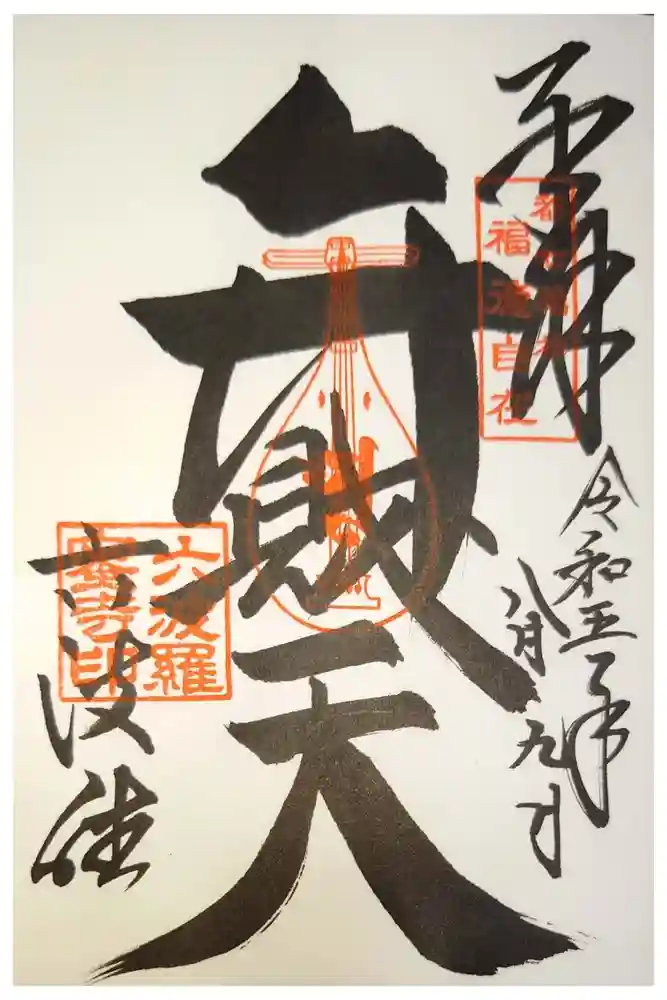 奉拝
令和五年
八月九日
弁財天
六波羅
六波羅
蜜寺印
都
福自在